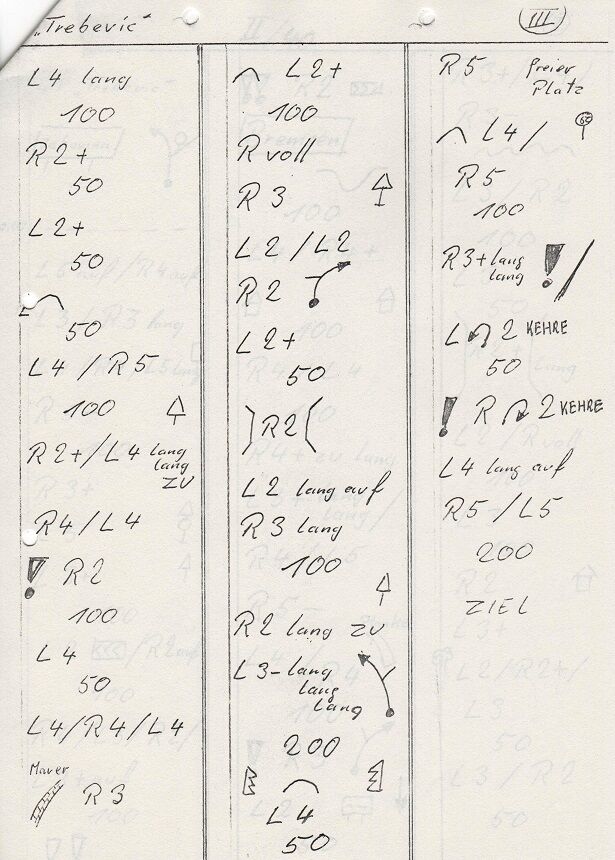 „Trebević“
III
L4 lang
100
R2+
50
L2+
50
50
L4 / R5
100
R2+/L4 lang
lang
zu
R4/L4
! R2
100
L4
50
L4/R4/L4
Mauer
R3
L2+
100
R voll
R3
L2/L2
R2
L2+
50
)R2(
L2 lang auf
R3 lang
100
R2 lang zu
L3- lang
lang
lang
200
L4
50
R5 freier
Platz
L4/
60
R5
100
R3+ lang
lang ! /
L 2 KEHRE
50
! R 2 KEHRE
L4 lang auf
R5/L5
200
ZIEL